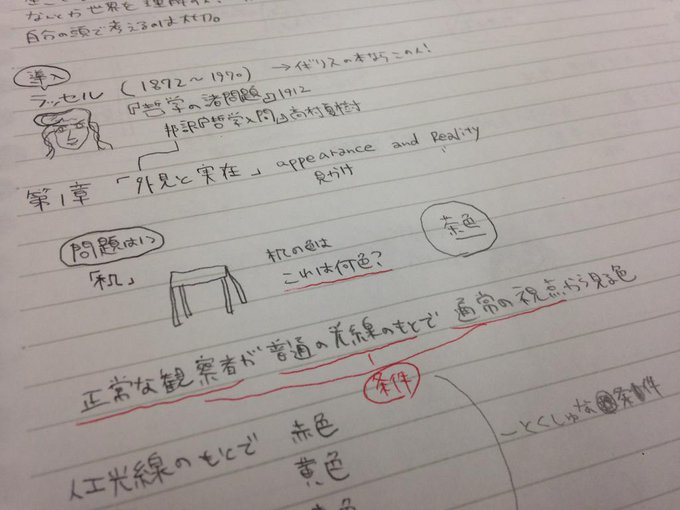 自分の頭で考えるのは大切。
導入
ラッセル (1872〜1970) →イギリスの本ならこの人!
『哲学の諸問題』1912
邦訳『哲学入門』高村夏樹
第1章 「外見と実在」 appearance and Reality
見かけ
問題は1つ
「机」
机の色は
これは何色?
茶色
正常な観察者が普通の光線のもとで通常の視点から見る色
条件
人工光線のもとで 赤色
黄色
色
―とくしゅな条件